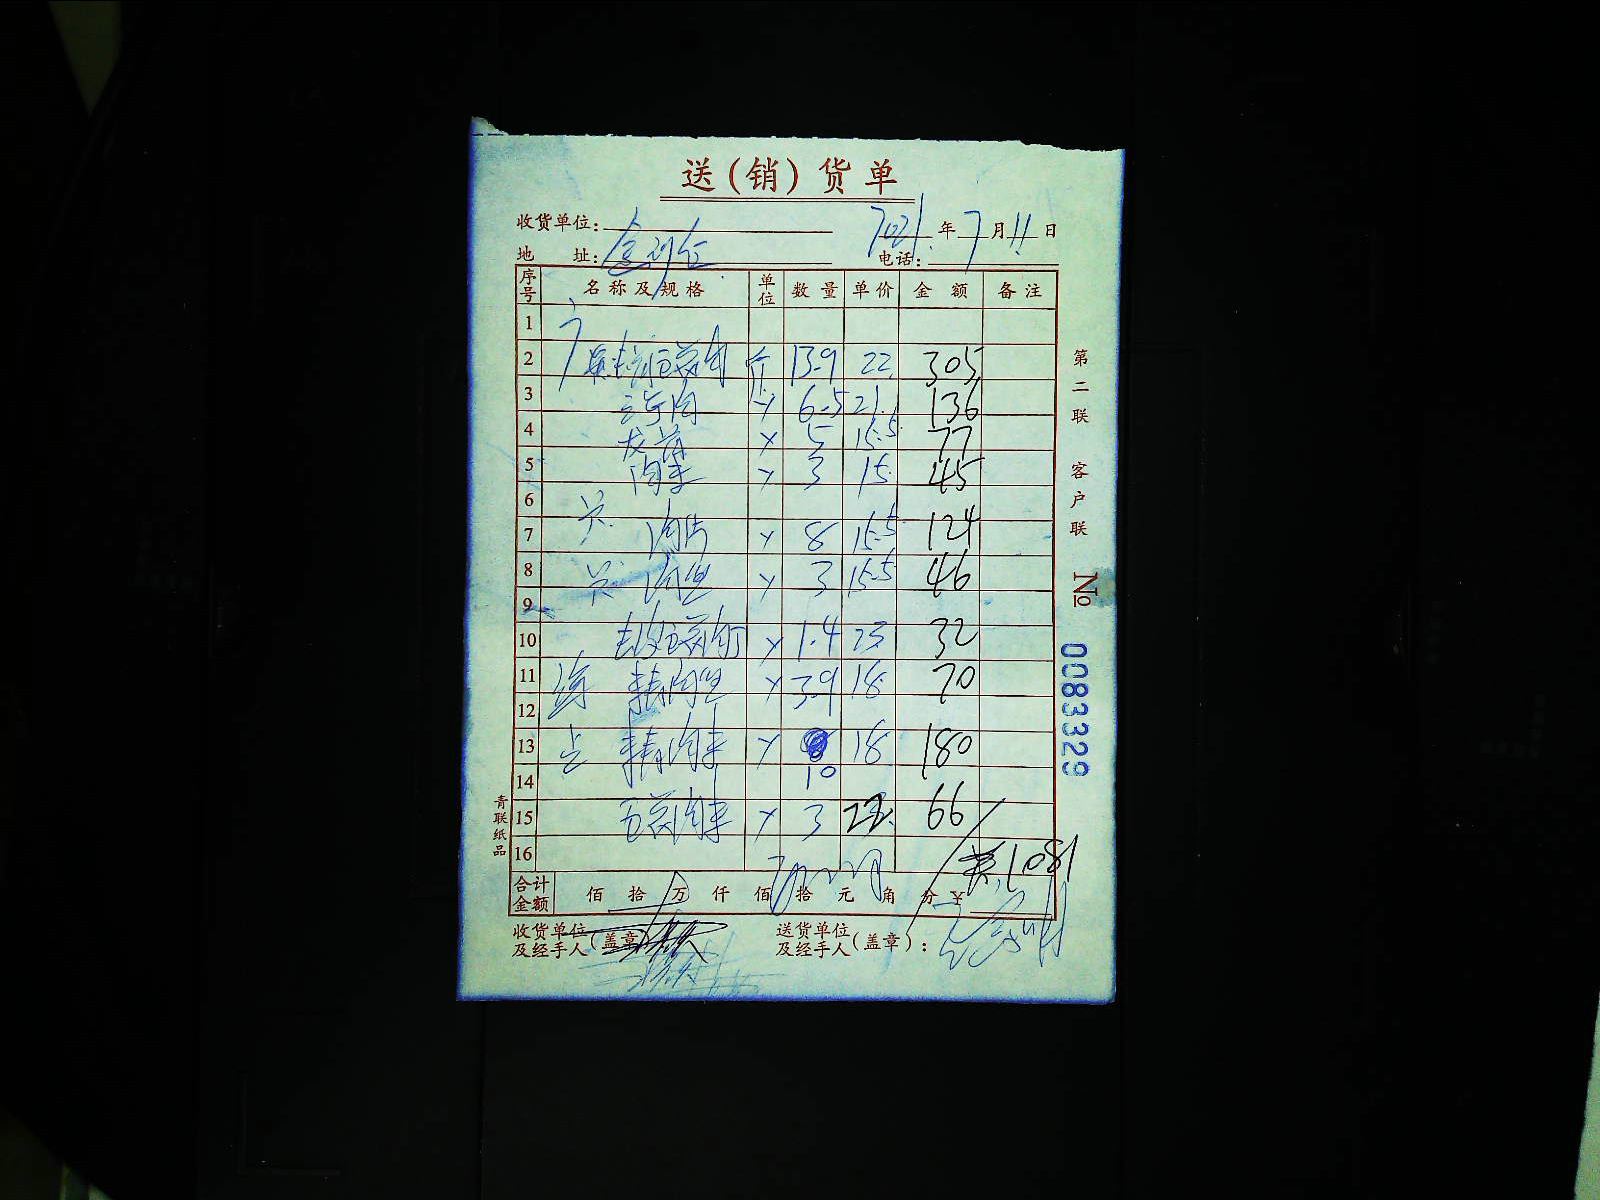 送(销)货单
收货单位: 2021年7月11日
地 址: 电话:
序号 名称及规格 单位 数量 单价 金额 备注
1
2 13.9 22 305
3 6.5 21 136
4 5 15.5 77
5 肉末 3 15 45
6
7 肉片 8 15.5 124
8 肉丝 3 15.5 46
9
10 去皮五花肉丁 1.4 23 32
11 精肉丝 3.9 18 70
12
13 精肉末 10 18 180
14
15 五花肉末 3 22 66
16 共1081
合计金额 佰 拾 万 仟 佰 拾 元 角 分 ¥
收货单位及经手人(盖章) 送货单位及经手人(盖章):
第二联 客户联 № 0083329
青联纸品